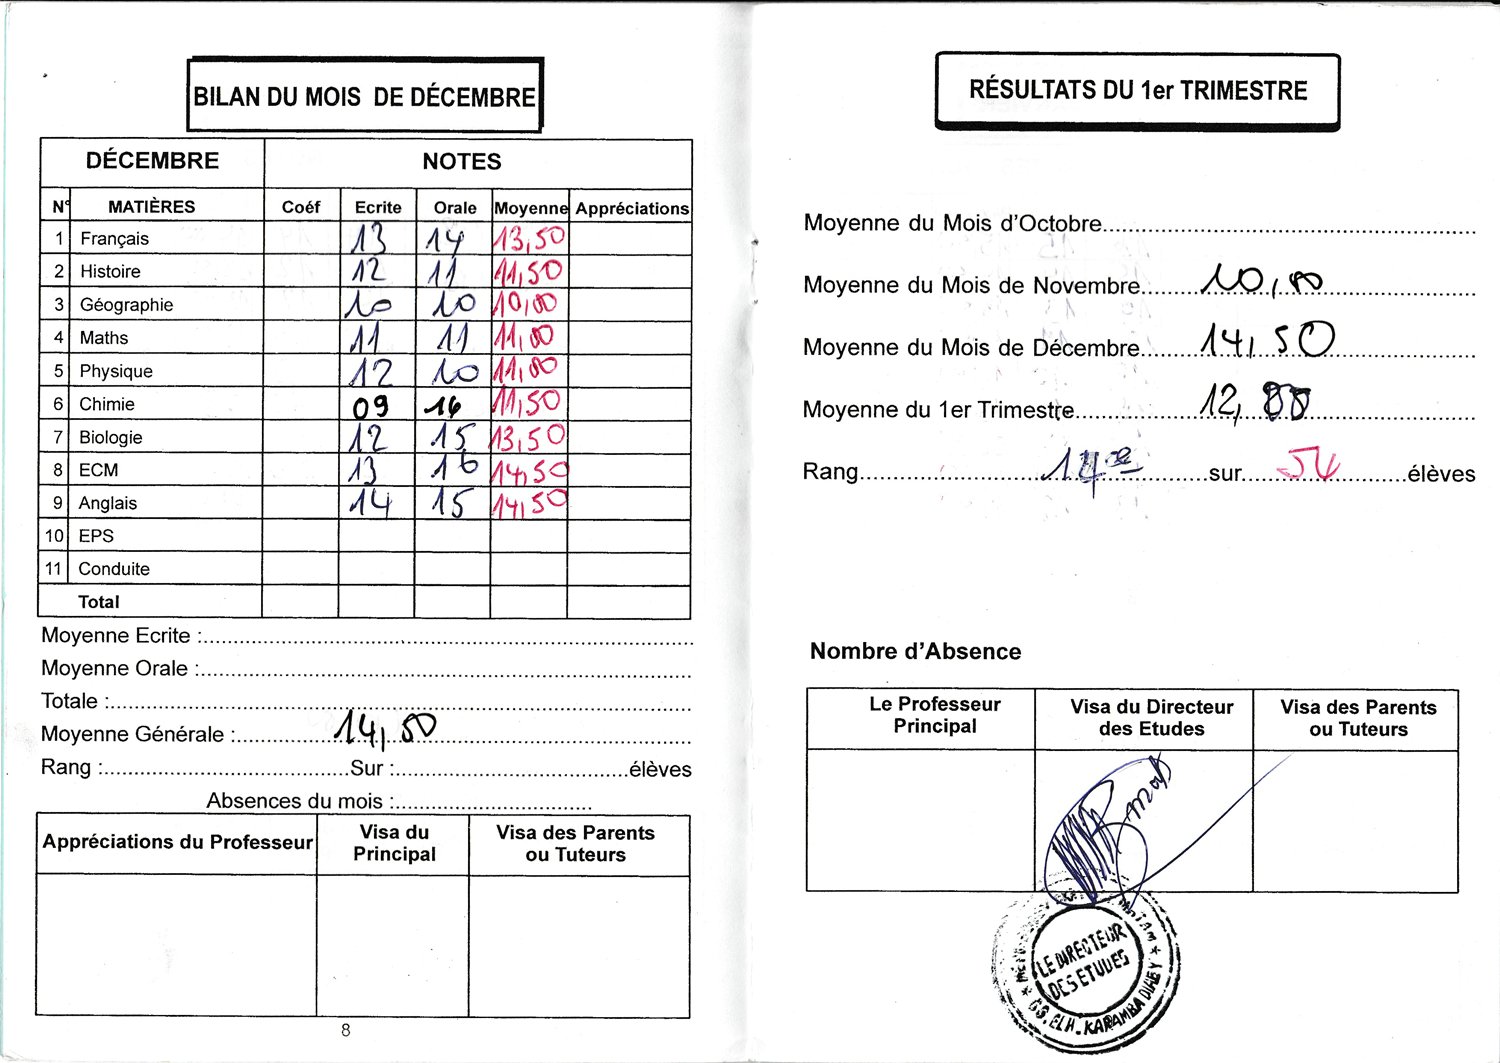 BILAN DU MOIS DE DÉCEMBRE
DÉCEMBRE NOTES
N° MATIÈRES Coéf Ecrite Orale Moyenne Appréciations
1 Français 13 14 13,50
2 Histoire 12 11 11,50
3 Géographie 10 10 10,00
4 Maths 11 11 11,00
5 Physique 12 10 11,00
6 Chimie 09 14 11,50
7 Biologie 12 15 13,50
8 ECM 13 16 14,50
9 Anglais 14 15 14,50
10 EPS
11 Conduite
Total
Moyenne Ecrite :
Moyenne Orale :
Totale :
Moyenne Générale : 14,50
Rang : Sur : élèves
Absences du mois :
Appréciations du Professeur Visa du Principal Visa des Parents ou Tuteurs
8
RÉSULTATS DU 1er TRIMESTRE
Moyenne du Mois d'Octobre
Moyenne du Mois de Novembre 10,00
Moyenne du Mois de Décembre 14,50
Moyenne du 1er Trimestre 12,
Rang sur 54 élèves
Nombre d'Absence
Le Professeur Principal Visa du Directeur des Etudes Visa des Parents ou Tuteurs
LE DIRECTEUR
DES ETUDES
MATAM * GS. ELH. KARAMBA DIABY *